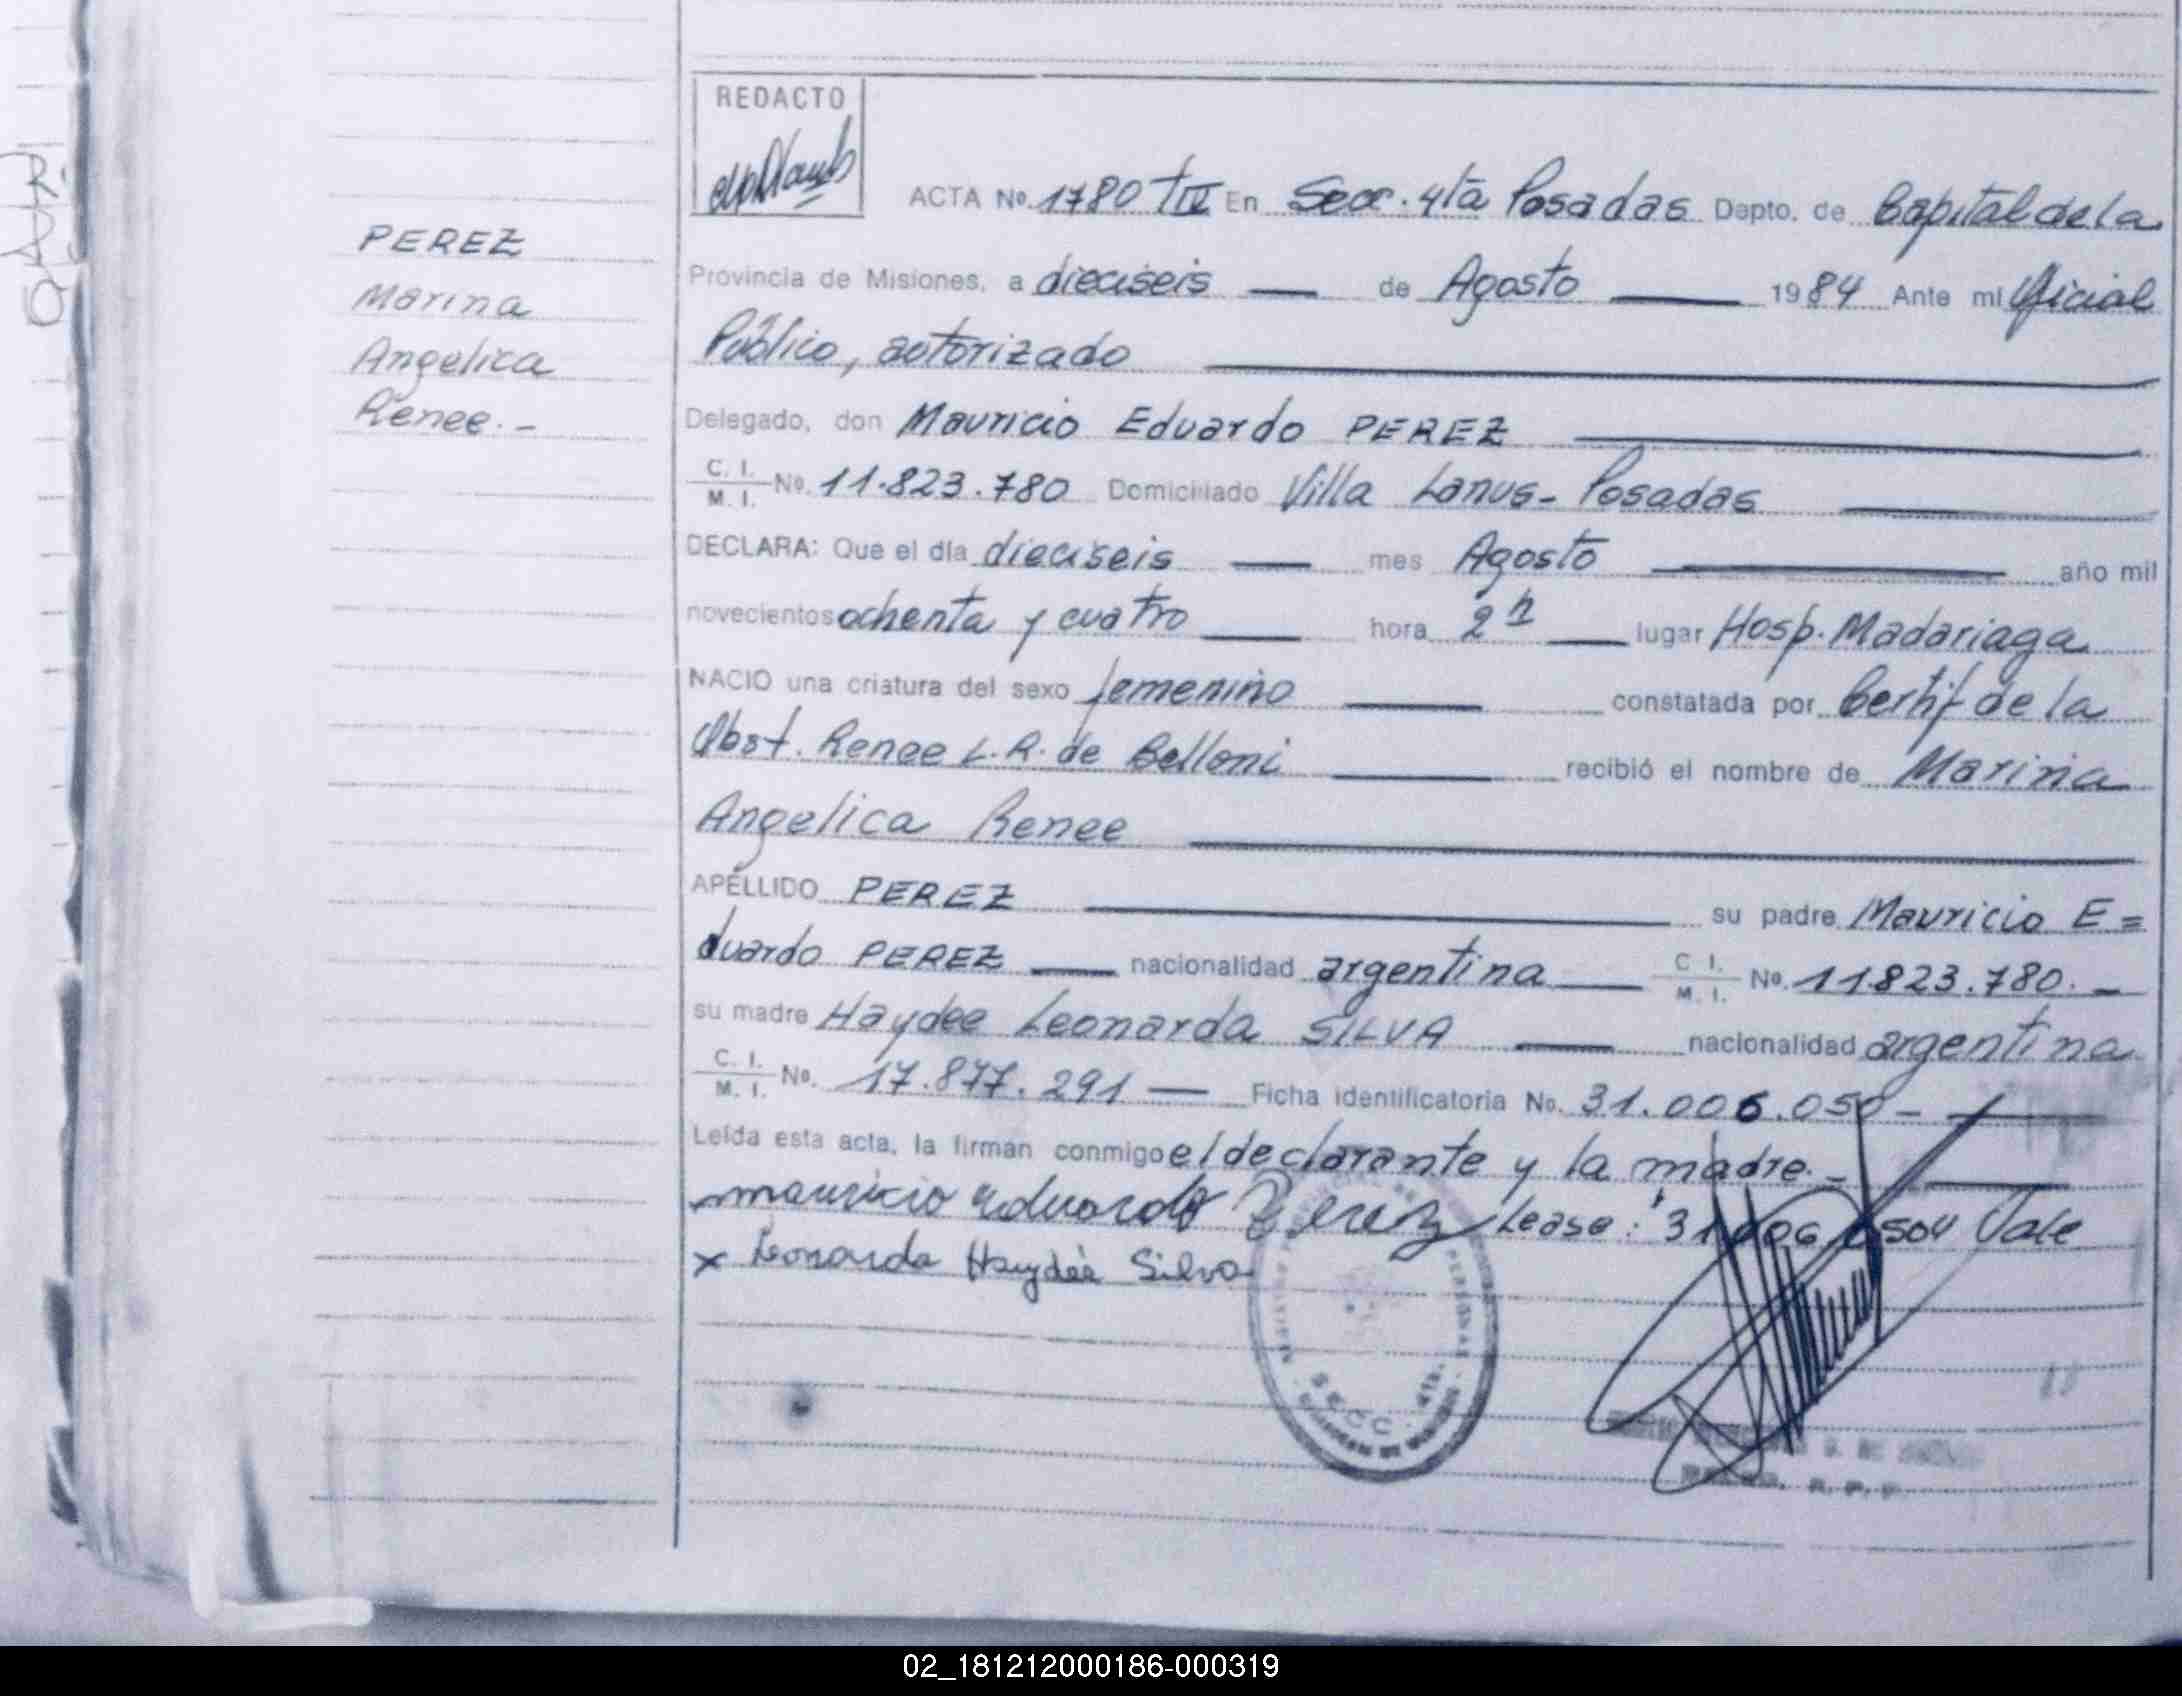 REDACTO
ACTA No. 1780 TIV En Secc. 4ta Posadas Dpto. de Capital de la
PEREZ
Marina
Angelica
Renee.-
Provincia de Misiones, a dieciseis — de Agosto — 1984 Ante mi Oficial
Público, autorizado
Delegado, don Mauricio Eduardo PEREZ
C. I. / M. I. No. 11.823.780 Domiciliado Villa Lanus- Posadas
DECLARA: Que el día dieciseis — mes Agosto — año mil
novecientos ochenta y cuatro — hora 2h — lugar Hosp. Madariaga
NACIO una criatura del sexo femenino — constatada por Certif de la
Obst. Renee L. R. de Belloni — recibió el nombre de Marina
Angelica Renee
APELLIDO PEREZ — su padre Mauricio E=
duardo PEREZ — nacionalidad argentina — C I. / M. I. No. 11.823.780.-
su madre Haydee Leonarda SILVA — nacionalidad argentina
C. I. / M. I. No. 17.877.291 — Ficha identificatoria No. 31.006.050-
Leída esta acta, la firman conmigo el declarante y la madre.-
mauricio eduardo Perez Lease: 31.006 Vale
x Leonarda Haydée Silva
SECC. 4ta.
02_181212000186-000319